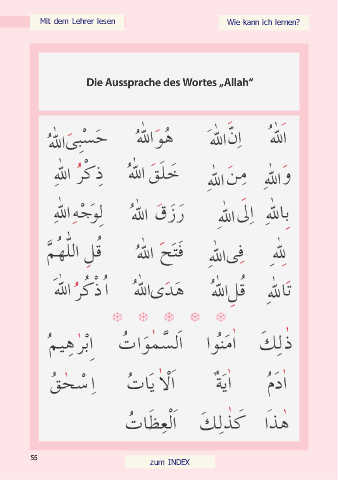 Mit dem Lehrer lesen
Wie kann ich lernen?
Die Aussprache des Wortes „Allah“
اَللّٰهُ اِنَّ اللّٰهَ هُوَ اللّٰهُ حَسْبِىَ اللّٰهُ
وَ اللّٰهِ مِنَ اللّٰهِ خَلَقَ اللّٰهُ ذِكْرُ اللّٰهِ
بِاللّٰهِ اِلَى اللّٰهِ رَزَقَ اللّٰهُ لِوَجْهِ اللّٰهِ
لِلّٰهِ فِى اللّٰهِ فَتَحَ اللّٰهُ قُلِ اللّٰهُمَّ
تَاللّٰهِ قُلِ اللّٰهُ هَدَى اللّٰهُ اُذْكُرُ اللّٰهَ
ذٰلِكَ اٰمَنُوا اَلسَّمٰوَاتُ اِبْرٰهِيمُ
اٰدَمُ اٰيَةٌ اَلْاٰيَاتُ اِسْحٰقُ
هٰذَا كَذٰلِكَ اَلْعِظَاتُ
55
zum INDEX